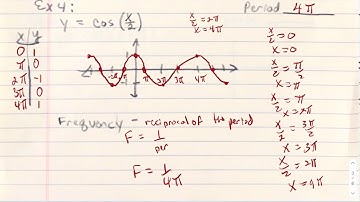 Ex 4:
y = cos(x/2)
x/2 = 2π
x = 4π
Period 4π
x | y
0 | 1
π | 0
2π | -1
3π | 0
4π | 1
-2π -π π 2π 3π 4π
x/2 = 0
x = 0
x/2 = π/2
x = π
x/2 = π
x = 2π
x/2 = 3π/2
x = 3π
x/2 = 2π
x = 4π
Frequency - reciprocal of the period
F = 1/per
F = 1/4π